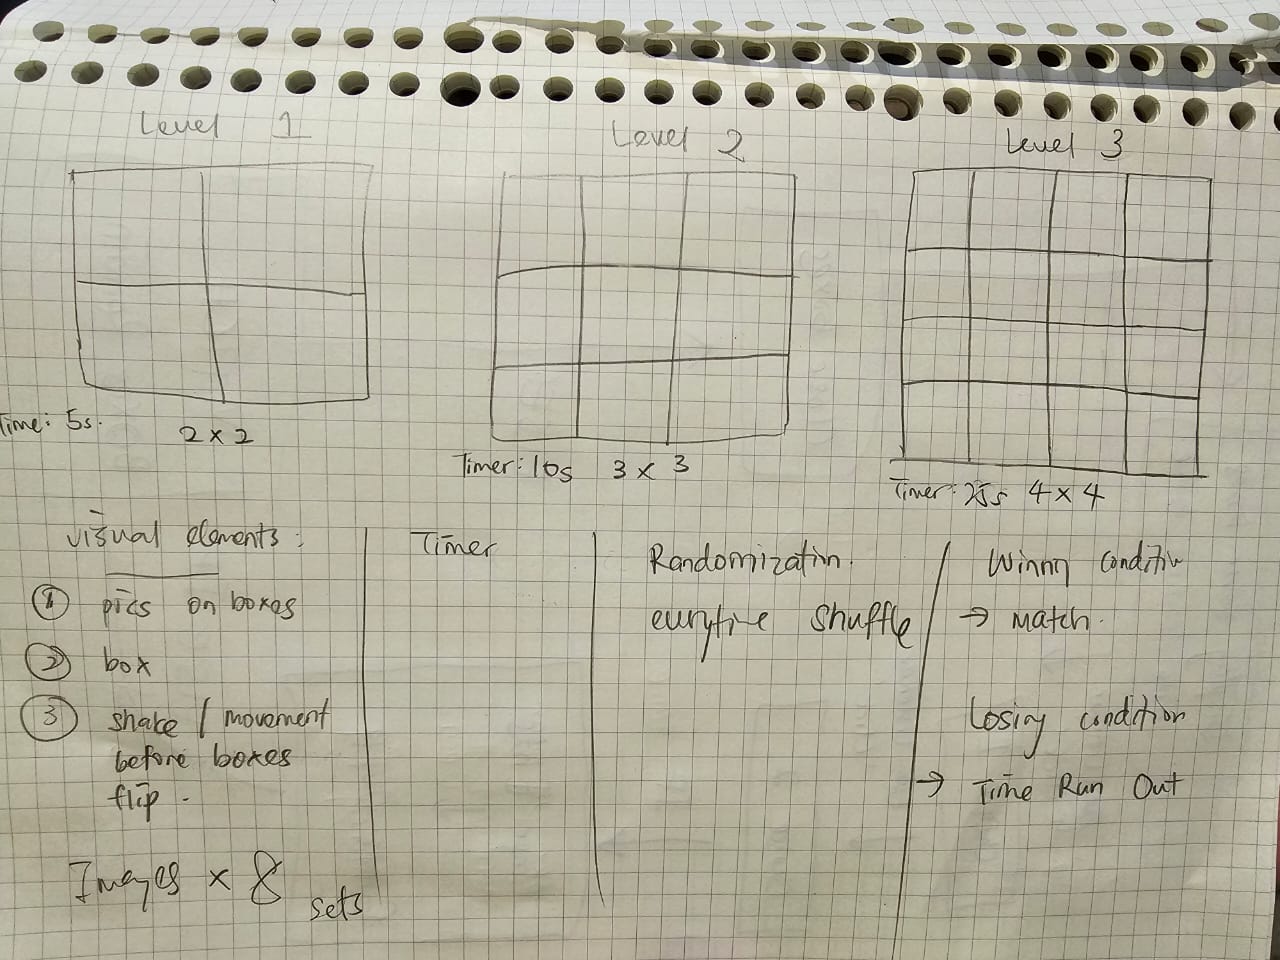 Level 1
Level 2
Level 3
Time: 5s.
2 x 2
Timer: 10s 3 x 3
Timer: 25s 4 x 4
visual elements:
① pics on boxes
② box
③ shake / movement
before boxes
flip.
Images x 8
sets
Timer
Randomization.
shuffle
Condition
→ Match.
Losing condition
→ Time Run Out